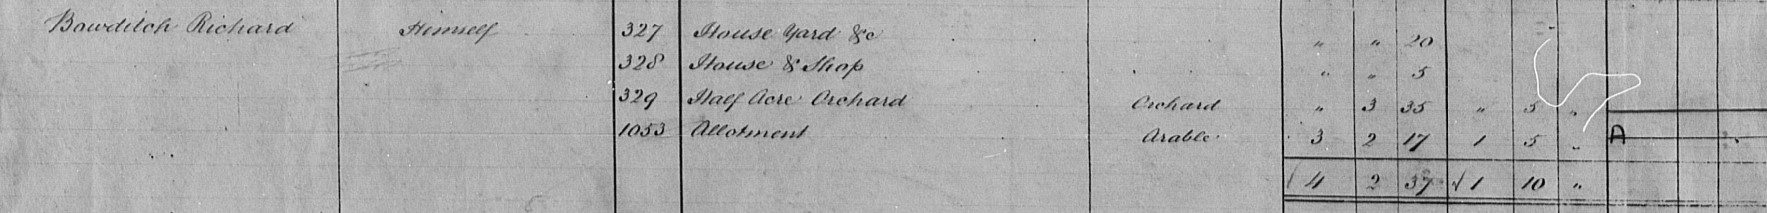 Bowditch Richard Himself 327 House Yard &c " " 20
328 House & Shop " " 5
329 Half Acre Orchard Orchard " 3 35 " 5 "
1053 Allotment Arable 3 2 17 1 5 " A
4 2 37 1 10 "